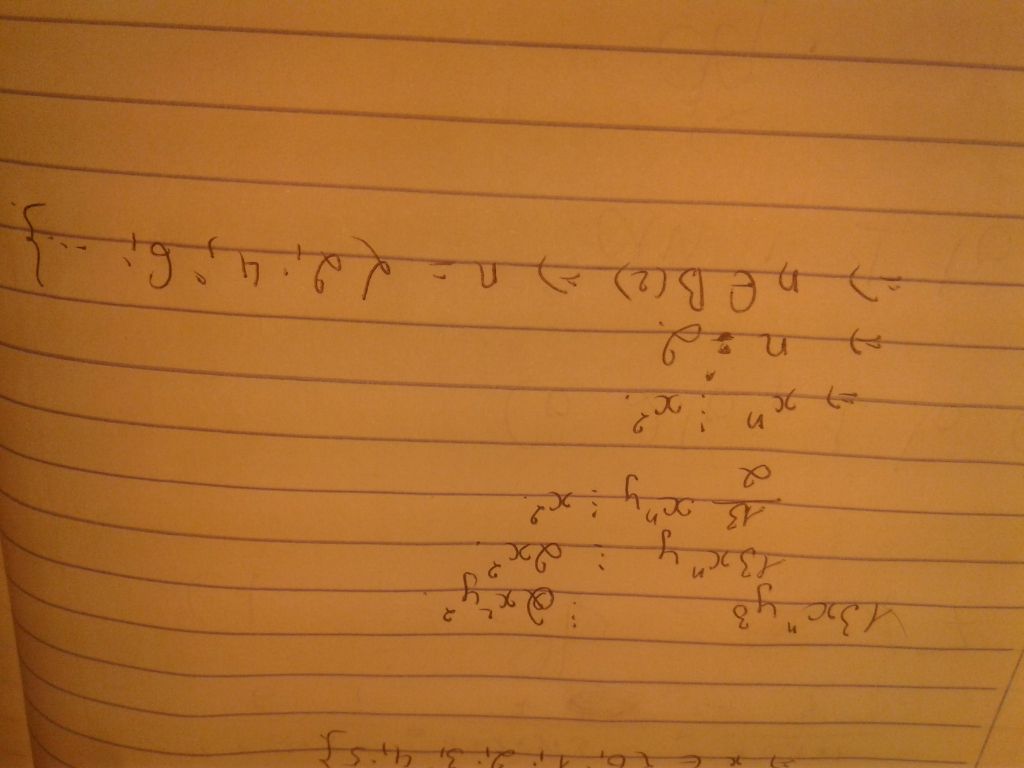 => x ∈ {0; 1; 2; 3; 4; 5}
13xⁿy³ ⋮ 2x²y²
13xⁿy ⋮ 2x²
13/2 xⁿy ⋮ x²
=> xⁿ ⋮ x²
=> n ⋮ 2
=> n ∈ B(2) => n = {2; 4; 6; ...}